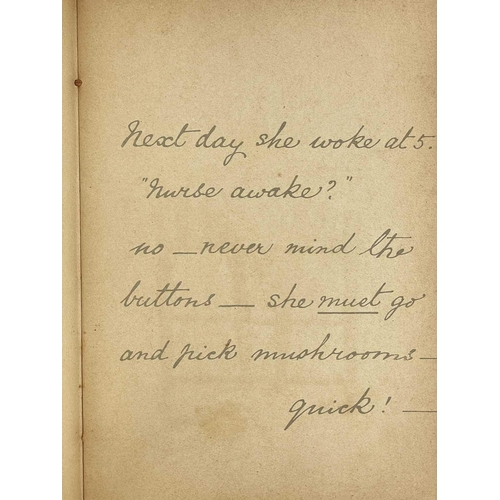 Next day she woke at 5.
"Nurse awake?"
no — never mind the
buttons — she must go
and pick mushrooms —
quick! —